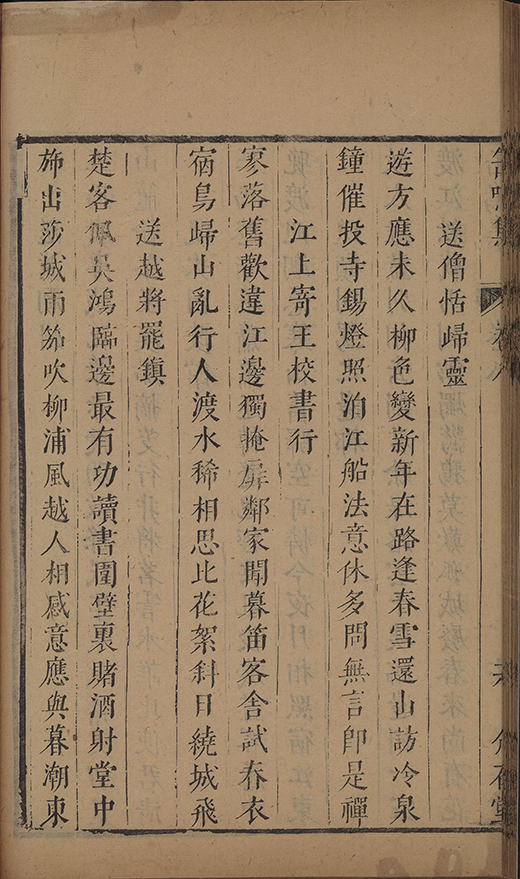 送僧恬歸靈
遊方應未久柳色變新年在路逢春雪還山訪冷泉
鐘催投寺錫燈照泊江船法意休多問無言卽是禪
江上寄王校書行
寥落舊歡違江邊獨掩扉鄰家聞暮笛客舍試春衣
宿鳥歸山亂行人渡水稀相思比花絮斜日繞城飛
送越將罷鎮
楚客佩吳鴻臨邊最有功讀書圍壁裏賭酒射堂中
斾出莎城雨笳吹柳浦風越人相感意應與暮潮東